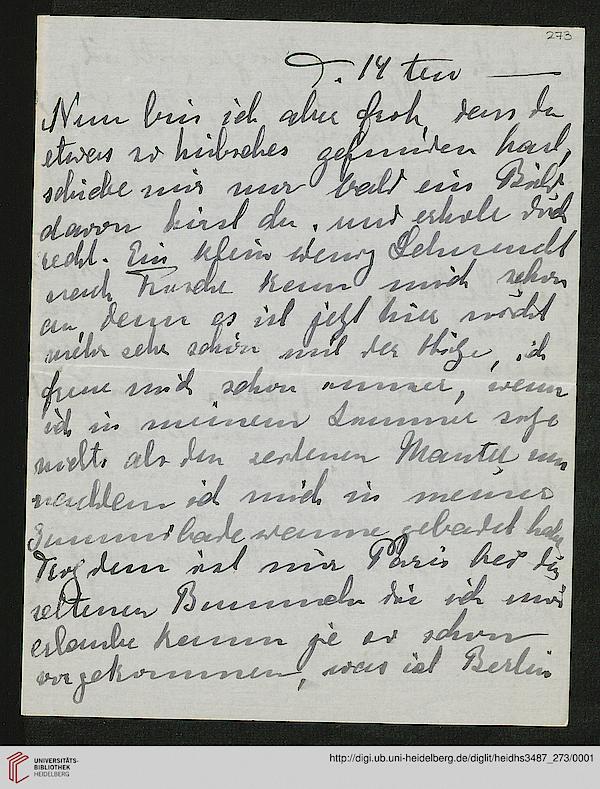 273
D. 14 ten
Nun bin ich aber froh, dass du
etwas so hübsches gefunden hast,
schicke mir nur bald ein Bild
davon hörst du, und erhole dich
recht. Ein klein wenig Sehnsucht
nach kann mich schon
an, denn es ist jetzt hier nicht
mehr sehr schön mit der Hitze, ich
freue mich schon immer, wenn
ich in meinem Zimmer sitze
nichts als den seidenen Mantel um
nachdem ich mich in meiner
Gummibadewanne gebadet habe
Trotzdem ist mir Paris bei den
seltenen Bummeln die ich mir
erlaube kaum je so schön
vorgekommen, was ist Berlin
UNIVERSITÄTS-
BIBLIOTHEK
HEIDELBERG
http://digi.ub.uni-heidelberg.de/diglit/heidhs3487_273/0001